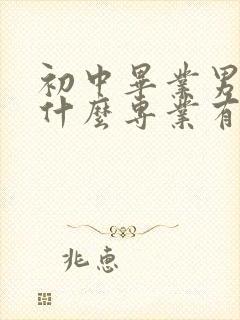 初中畢業男
什麼專業有
兆惠